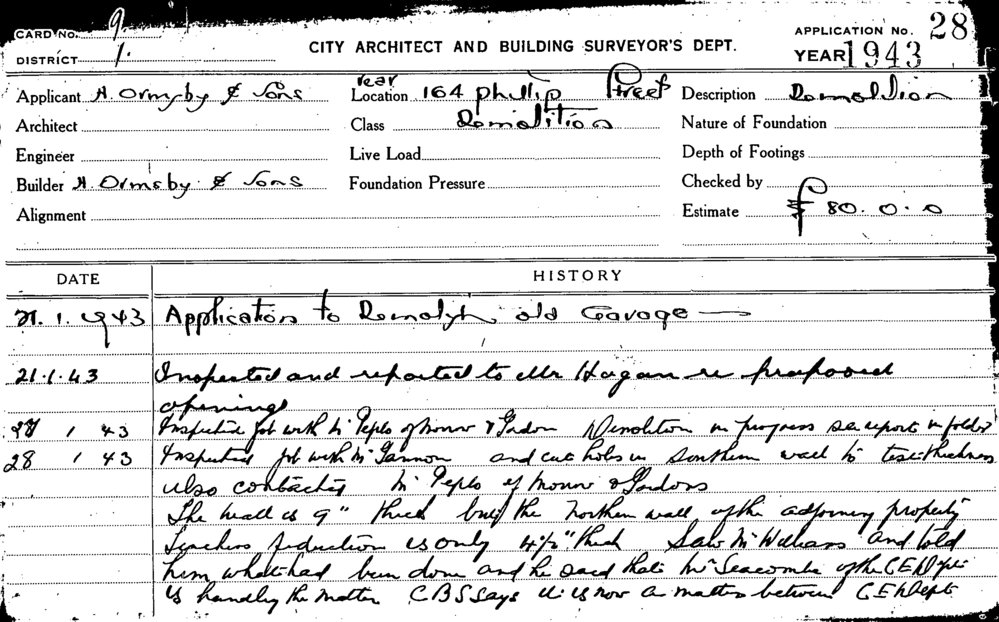 CARD No. 9
DISTRICT 1.
CITY ARCHITECT AND BUILDING SURVEYOR'S DEPT.
APPLICATION No. 28
YEAR 1943
Applicant H. Ormsby & Sons
rear
Location 164 Phillip Street
Description Demolition
Architect
Class Demolition
Nature of Foundation
Engineer
Live Load
Depth of Footings
Builder H. Ormsby & Sons
Foundation Pressure
Checked by
Alignment
Estimate £ 80. 0. 0
DATE
HISTORY
21. 1. 1943 Application to Demolish old Garage
21.1.43 Inspected and reported to Mr Hogan re proposed
openings
1 43 Inspected job with Mr Peplo of & Demolition in progress see report in folder
28 1 43 Inspected job with Mr Gannon and cut holes in Southern wall to test thickness
also contacted Mr Peplo of
The wall is 9" thick but the Northern wall of the adjoining property
is only 4½" thick Saw Mr Williams and told
him what had been done and he said that Mr Seacombe of the C.E. Dept
is handling the matter C B S says it is now a matter between C E Dept